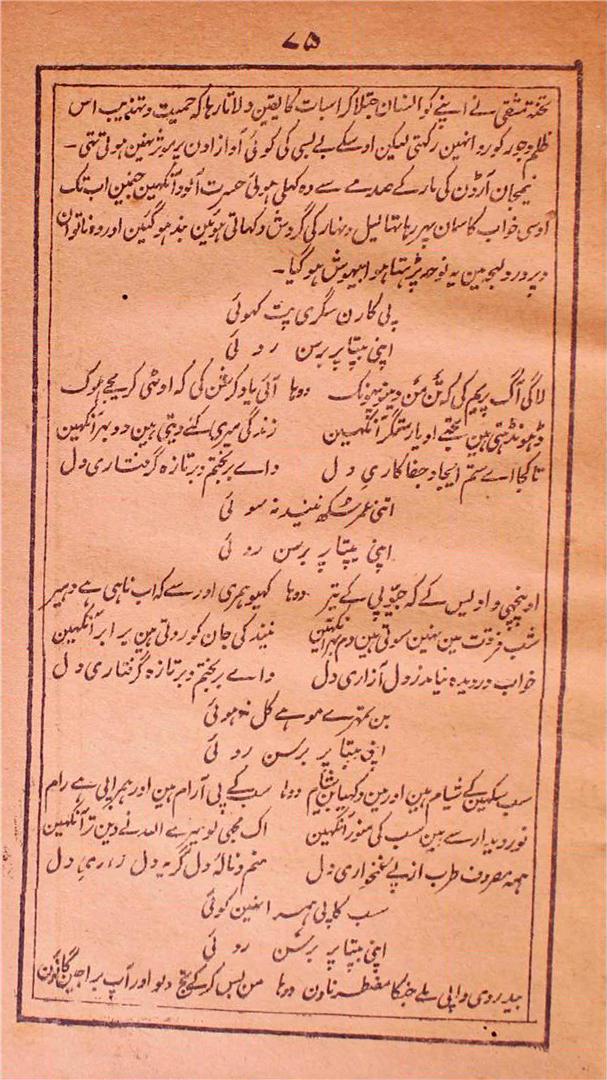 ۷۵
تختہ مشقی نے اپنے کو انسان جتلا کر اسبات کا یقین دلاتا رہا کہ حمیت و تہذیب اس
ظلم و جور کو روا نہین رکہتی لیکن اوسکے بے بسی کی کوئی آواز اون پر موثر نہین ہوتی تہی ۔
نیمجان آرڈن کی مار کے صدمے سے وہ کہلی ہوئی حسرت آلود آنکہین جنمین اب تک
اوسی خواب کا سمان پہر رہا تہا لیل و نہار کی گردش دکہاتی ہوئین بند ہوگئین اور وہ ناتوان
پردرد لہجہ مین یہ نوحہ پڑہتا ہوا بیہوش ہو گیا ۔
پی کارن سگری پت کہوئی
اپنی بپتا پر برسن روئی
لاگی آگ پریم کی کہ تن من دینہو پہونک دوہا آئی یاد کی کہ اوٹہی کریجے ہوک
ڈہونڈہتی ہین تجہے او یار ستمگر آنکہین زندگی میری کئے دیتی ہین دوبہر آنکہین
تا کجا اے ستم ایجاد جفا کاری دل واے بر بختم و بر تازہ گرفتاری دل
اتنی عمر سکہ نیند نہ سوئی
اپنی بپتا پر برسن روئی
او پنچہی و اویس کے کہ جو پی کے تیر دوہا کہیو ہمری اور سے کہ اب ناہی ہے دہیر
شب فرقت مین نہین سوتی ہین دم بہر آنکہین نیند کی جان کو روتی ہین برابر آنکہین
خواب در دیدہ نیامد ز دل آزاری دل واے بر بختم و بر تازہ گرفتاری دل
بن تمہرے موہے کل نہ ہوئی
اپنی بپتا پر برسن روئی
سب سکہین کے شیام ہین اور مین دکہیا بن شیام دوہا سب کے پی آرام ہین اور ہمرا پی ہے رام
نور دیدار سے ہین سب کی منور آنکہین اک مجہی کو میرے اللہ نے دین تر آنکہین
ہمہ مصروف طرب از پے غمخواری دل منم و نالۂ دل گریۂ دل زاری دل
سب کا پی ہمرا نہین کوئی
اپنی بپتا پر برسن روئی
بیدردی وا پی ہے جنکا مضطر ناون دوہا من بس کر کے تج دیو اور آپ براجین گانون